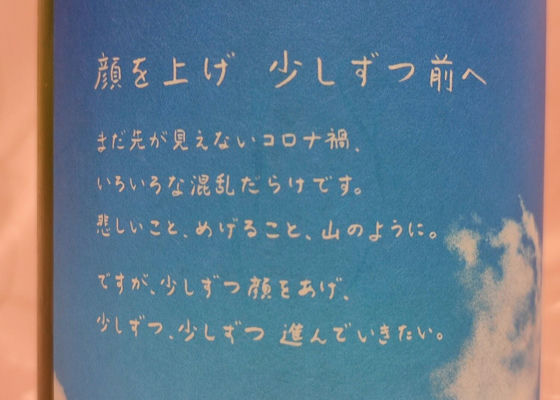 顔を上げ 少しずつ前へ
まだ先が見えないコロナ禍、
いろいろな混乱だらけです。
悲しいこと、めげること、山のように。
ですが、少しずつ顔をあげ、
少しずつ、少しずつ 進んでいきたい。